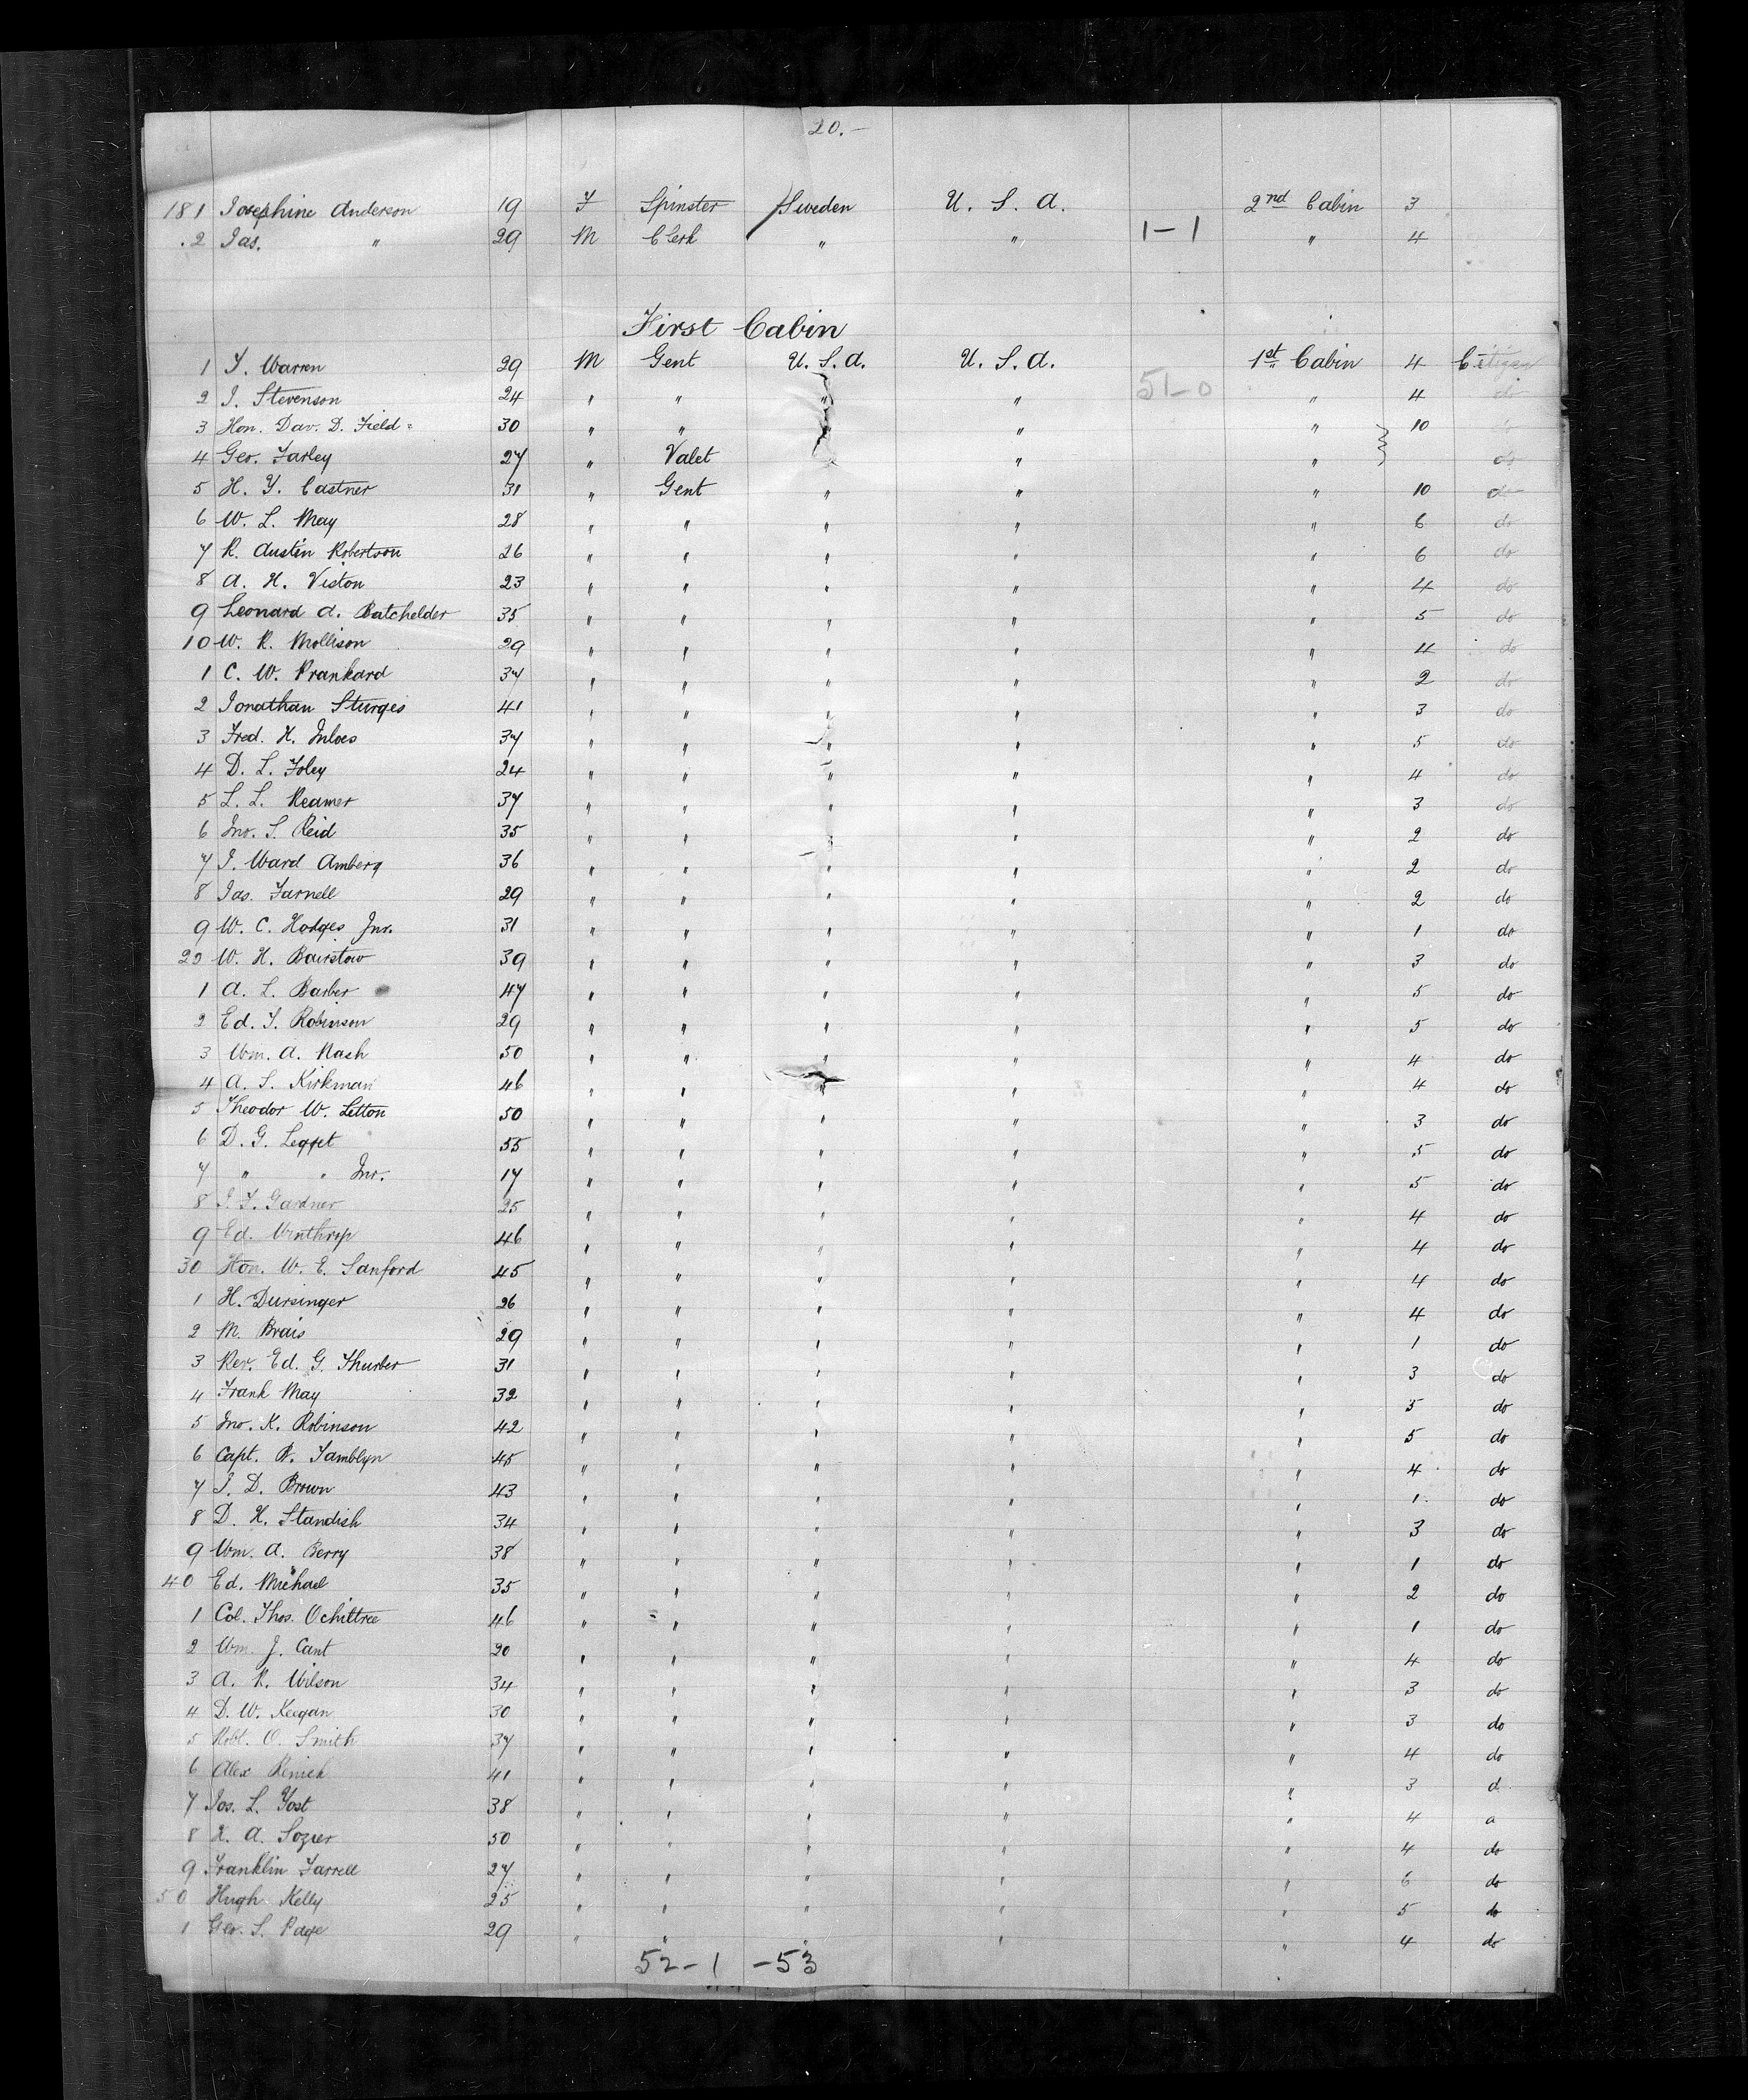 20.-
181 Josephine Anderson 19 F Spinster Sweden U. S. A. 2nd Cabin 3
.2 Jas. " 29 M Clerk " " 1-1 " 4
First Cabin
1 T. Warren 29 M Gent U. S. A. U. S. A. 1st Cabin 4 Citizen
2 J. Stevenson 24 " " " " 51-0 " 4 do
3 Hon. Dav. D. Field 30 " " " " " 10 do
4 Geo. Farley 27 " Valet " " " do
5 H. Y. Castner 31 " Gent " " " 10 do
6 W. L. May 28 " " " " " 6 do
7 R. Austin Robertson 26 " " " " " 6 do
8 A. H. Viston 23 " " " " " 4 do
9 Leonard A. Batchelder 35 " " " " " 5 do
10 W. R. Mollison 29 " " " " " 4 do
1 C. W. Prankard 37 " " " " " 2 do
2 Jonathan Sturges 41 " " " " " 3 do
3 Fred. H. Inloes 37 " " " " " 5 do
4 D. L. Foley 24 " " " " " 4 do
5 L. L. Reamer 37 " " " " " 3 do
6 Jno. S. Reid 35 " " " " " 2 do
7 J. Ward Amberg 36 " " " " " 2 do
8 Jas. Farnell 29 " " " " " 2 do
9 W. C. Hodges Jnr. 31 " " " " " 1 do
20 W. H. Bairstow 39 " " " " " 3 do
1 A. L. Barber 47 " " " " " 5 do
2 Ed. T. Robinson 29 " " " " " 5 do
3 Wm. A. Nash 50 " " " " " 4 do
4 A. S. Kirkman 46 " " " " " 4 do
5 Theodor W. Letton 50 " " " " " 3 do
6 D. G. Legget 55 " " " " " 5 do
7 " " Jnr. 17 " " " " " 5 do
8 J. F. Gardner 25 " " " " " 4 do
9 Ed. Winthrop 46 " " " " " 4 do
30 Hon. W. E. Sanford 45 " " " " " 4 do
1 H. Dursinger 26 " " " " " 4 do
2 M. Brais 29 " " " " " 1 do
3 Rev. Ed. G. Thurber 31 " " " " " 3 do
4 Frank May 32 " " " " " 5 do
5 Jno. K. Robinson 42 " " " " " 5 do
6 Capt. R. Tamblyn 45 " " " " " 4 do
7 J. D. Brown 43 " " " " " 1 do
8 D. H. Standish 34 " " " " " 3 do
9 Wm. A. Berry 38 " " " " " 1 do
40 Ed. Michael 35 " " " " " 2 do
1 Col. Thos. Ochittree 46 " " " " " 1 do
2 Wm. J. Cant 20 " " " " " 4 do
3 A. R. Wilson 34 " " " " " 3 do
4 D. W. Keegan 30 " " " " " 3 do
5 Robt. O. Smith 37 " " " " " 4 do
6 Alex 41 " " " " " 3 d
7 Jos. L. Yost 38 " " " " " 4 a
8 A. Lozier 50 " " " " " 4 do
9 Franklin Farrell 27 " " " " " 6 do
50 Hugh Kelly 25 " " " " " 5 do
1 Geo. S. Page 29 " " " " " 4 do
52-1 -53